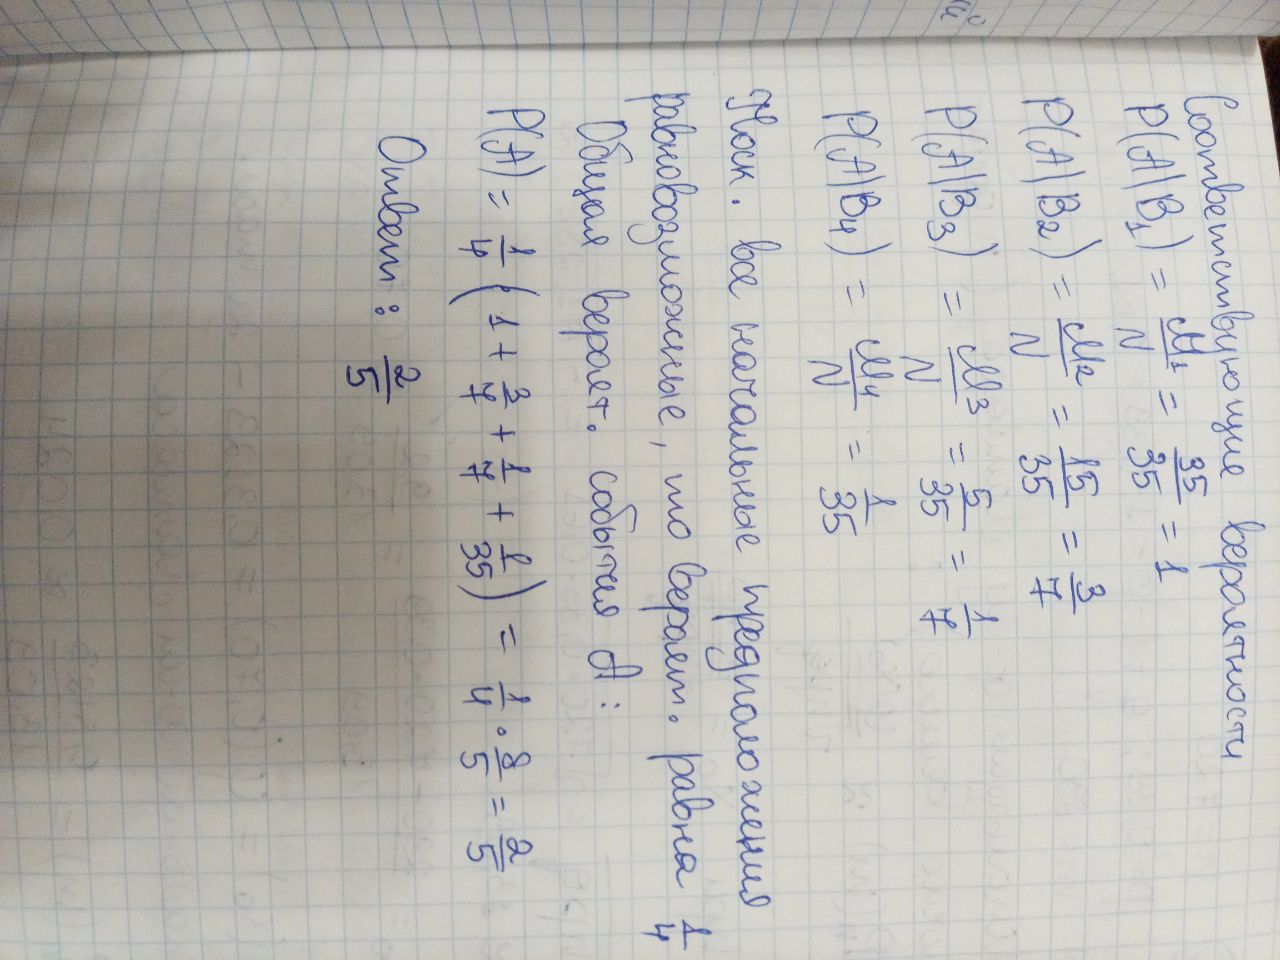 Соответствующие вероятности
P(A|B₁) = M₁/N = 35/35 = 1
P(A|B₂) = M₂/N = 15/35 = 3/7
P(A|B₃) = M₃/N = 5/35 = 1/7
P(A|B₄) = M₄/N = 1/35
Поск. все начальные предположения
равновозможные, то вероят. равна 1/4
Общая вероят. события A:
P(A) = 1/4 (1 + 3/7 + 1/7 + 1/35) = 1/4 · 8/5 = 2/5
Ответ: 2/5